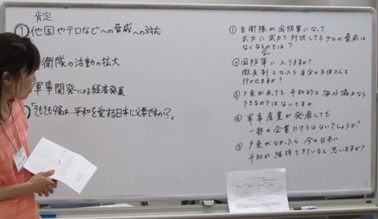 肯定
①他国やテロなどへの脅威への対応
衛隊の活動の拡大
軍事開発による経済発展
「そもそも9条は、平和を愛する日本に必要ですか？」
①自衛隊が国防軍になって
武力に武力で対抗してもテロの脅威は
なくならないのでは？
②国防軍に入りますか？
徴兵制となったら自分の子供さんを
行かせますか？
③9条があっても平和的な海外協力なら
できるのではないですか
④軍事産業が発展しても
一部の企業だけではないでしょうか？
⑤9条がなかったら今の日本に
平和が維持できていると思いますか？